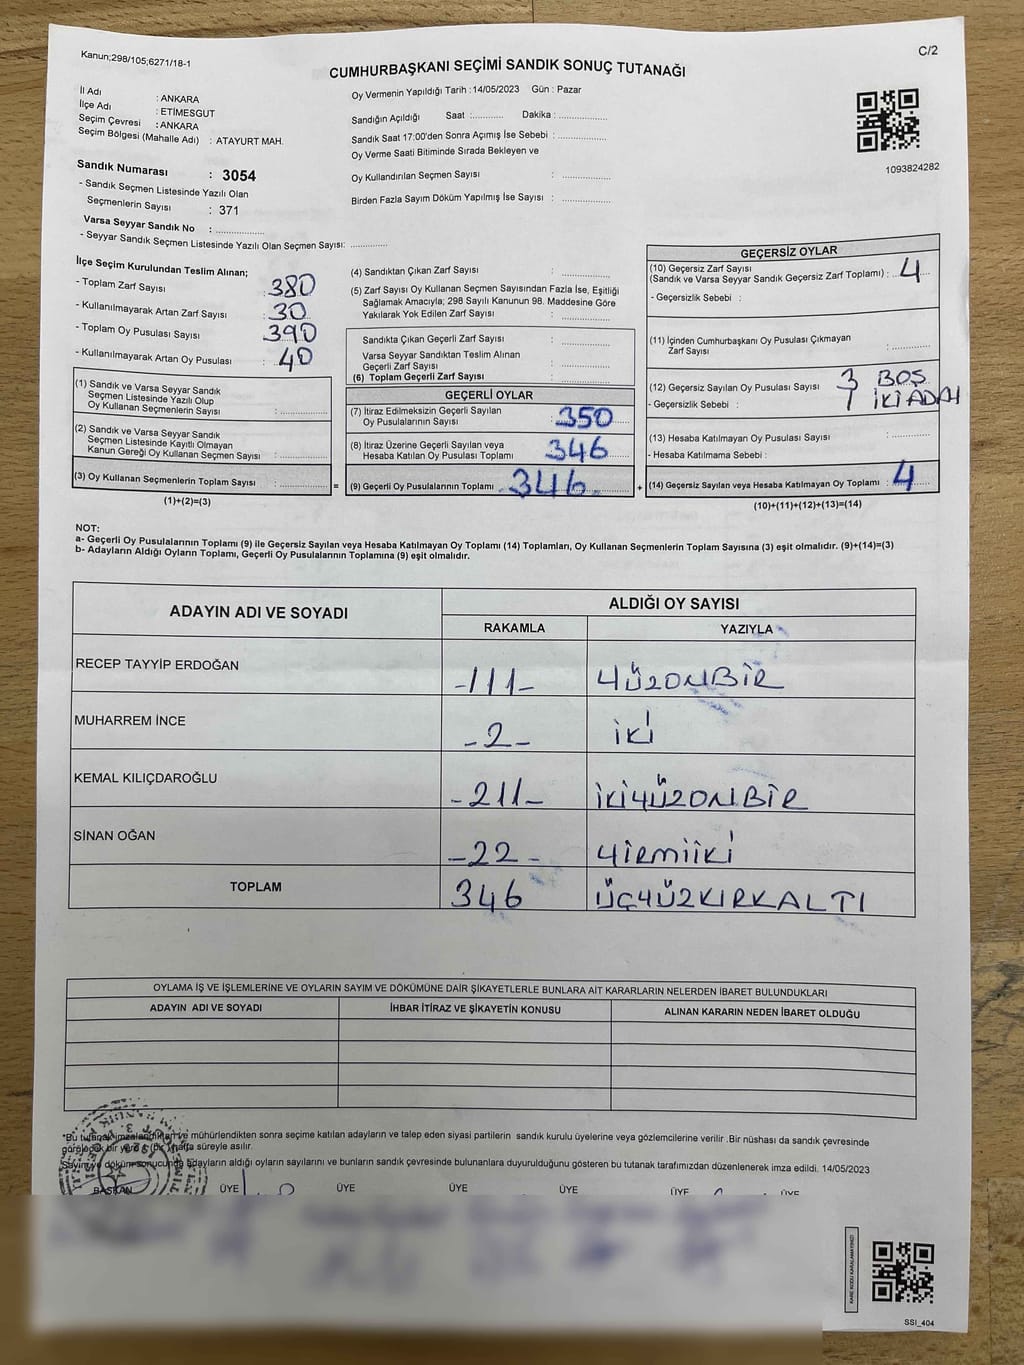 Kanun;298/105;6271/18-1
C/2
CUMHURBAŞKANI SEÇİMİ SANDIK SONUÇ TUTANAĞI
İl Adı : ANKARA
İlçe Adı : ETİMESGUT
Seçim Çevresi : ANKARA
Seçim Bölgesi (Mahalle Adı) : ATAYURT MAH.
Oy Vermenin Yapıldığı Tarih : 14/05/2023 Gün : Pazar
Sandığın Açıldığı Saat :........... Dakika :...................
Sandık Saat 17:00'den Sonra Açımış İse Sebebi :...................
Oy Verme Saati Bitiminde Sırada Bekleyen ve
Oy Kullandırılan Seçmen Sayısı :...................
Birden Fazla Sayım Döküm Yapılmış İse Sayısı :...................
1093824282
Sandık Numarası : 3054
- Sandık Seçmen Listesinde Yazılı Olan
Seçmenlerin Sayısı : 371
Varsa Seyyar Sandık No :...................
- Seyyar Sandık Seçmen Listesinde Yazılı Olan Seçmen Sayısı: ..............
İlçe Seçim Kurulundan Teslim Alınan;
- Toplam Zarf Sayısı : 380
- Kullanılmayarak Artan Zarf Sayısı : 30
- Toplam Oy Pusulası Sayısı : 390
- Kullanılmayarak Artan Oy Pusulası : 40
(1) Sandık ve Varsa Seyyar Sandık
Seçmen Listesinde Yazılı Olup
Oy Kullanan Seçmenlerin Sayısı :...................
(2) Sandık ve Varsa Seyyar Sandık
Seçmen Listesinde Kayıtlı Olmayan
Kanun Gereği Oy Kullanan Seçmen Sayısı :...................
(3) Oy Kullanan Seçmenlerin Toplam Sayısı :................... =
(1)+(2)=(3)
(4) Sandıktan Çıkan Zarf Sayısı :...................
(5) Zarf Sayısı Oy Kullanan Seçmen Sayısından Fazla İse, Eşitliği
Sağlamak Amacıyla; 298 Sayılı Kanunun 98. Maddesine Göre
Yakılarak Yok Edilen Zarf Sayısı :...................
Sandıkta Çıkan Geçerli Zarf Sayısı :...................
Varsa Seyyar Sandıktan Teslim Alınan
Geçerli Zarf Sayısı :...................
(6) Toplam Geçerli Zarf Sayısı :...................
GEÇERLİ OYLAR
(7) İtiraz Edilmeksizin Geçerli Sayılan
Oy Pusulalarının Sayısı : 350
(8) İtiraz Üzerine Geçerli Sayılan veya
Hesaba Katılan Oy Pusulası Toplamı : 346
(9) Geçerli Oy Pusulalarının Toplamı : 346 +
GEÇERSİZ OYLAR
(10) Geçersiz Zarf Sayısı
(Sandık ve Varsa Seyyar Sandık Geçersiz Zarf Toplamı) : 4
- Geçersizlik Sebebi :
(11) İçinden Cumhurbaşkanı Oy Pusulası Çıkmayan
Zarf Sayısı :...................
(12) Geçersiz Sayılan Oy Pusulası Sayısı 3 BOŞ
- Geçersizlik Sebebi : 1 İKİ ADAY
(13) Hesaba Katılmayan Oy Pusulası Sayısı :...................
- Hesaba Katılmama Sebebi :
(14) Geçersiz Sayılan veya Hesaba Katılmayan Oy Toplamı : 4
(10)+(11)+(12)+(13)=(14)
NOT:
a- Geçerli Oy Pusulalarının Toplamı (9) ile Geçersiz Sayılan veya Hesaba Katılmayan Oy Toplamı (14) Toplamları, Oy Kullanan Seçmenlerin Toplam Sayısına (3) eşit olmalıdır. (9)+(14)=(3)
b- Adayların Aldığı Oyların Toplamı, Geçerli Oy Pusulalarının Toplamına (9) eşit olmalıdır.
ADAYIN ADI VE SOYADI
ALDIĞI OY SAYISI
RAKAMLA YAZIYLA
RECEP TAYYİP ERDOĞAN -111- YÜZONBİR
MUHARREM İNCE -2- İKİ
KEMAL KILIÇDAROĞLU -211- İKİYÜZONBİR
SİNAN OĞAN -22- YİRMİİKİ
TOPLAM 346 ÜÇYÜZKIRKALTI
OYLAMA İŞ VE İŞLEMLERİNE VE OYLARIN SAYIM VE DÖKÜMÜNE DAİR ŞİKAYETLERLE BUNLARA AİT KARARLARIN NELERDEN İBARET BULUNDUKLARI
ADAYIN ADI VE SOYADI İHBAR İTİRAZ VE ŞİKAYETİN KONUSU ALINAN KARARIN NEDEN İBARET OLDUĞU
*Bu tutanak imzalandıktan ve mühürlendikten sonra seçime katılan adayların ve talep eden siyasi partilerin sandık kurulu üyelerine veya gözlemcilerine verilir .Bir nüshası da sandık çevresinde
görülecek bir yere 1 (bir) hafta süreyle asılır.
Sayım ve döküm sonucunda adayların aldığı oyların sayılarını ve bunların sandık çevresinde bulunanlara duyurulduğunu gösteren bu tutanak tarafımızdan düzenlenerek imza edildi. 14/05/2023
BAŞKAN ÜYE ÜYE ÜYE ÜYE ÜYE ÜYE
KARE KODU KARALAMAYINIZ!
SSI_404